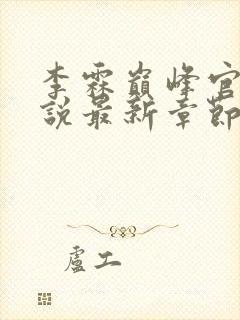 李霖巔峰官
說最新章節
盧工